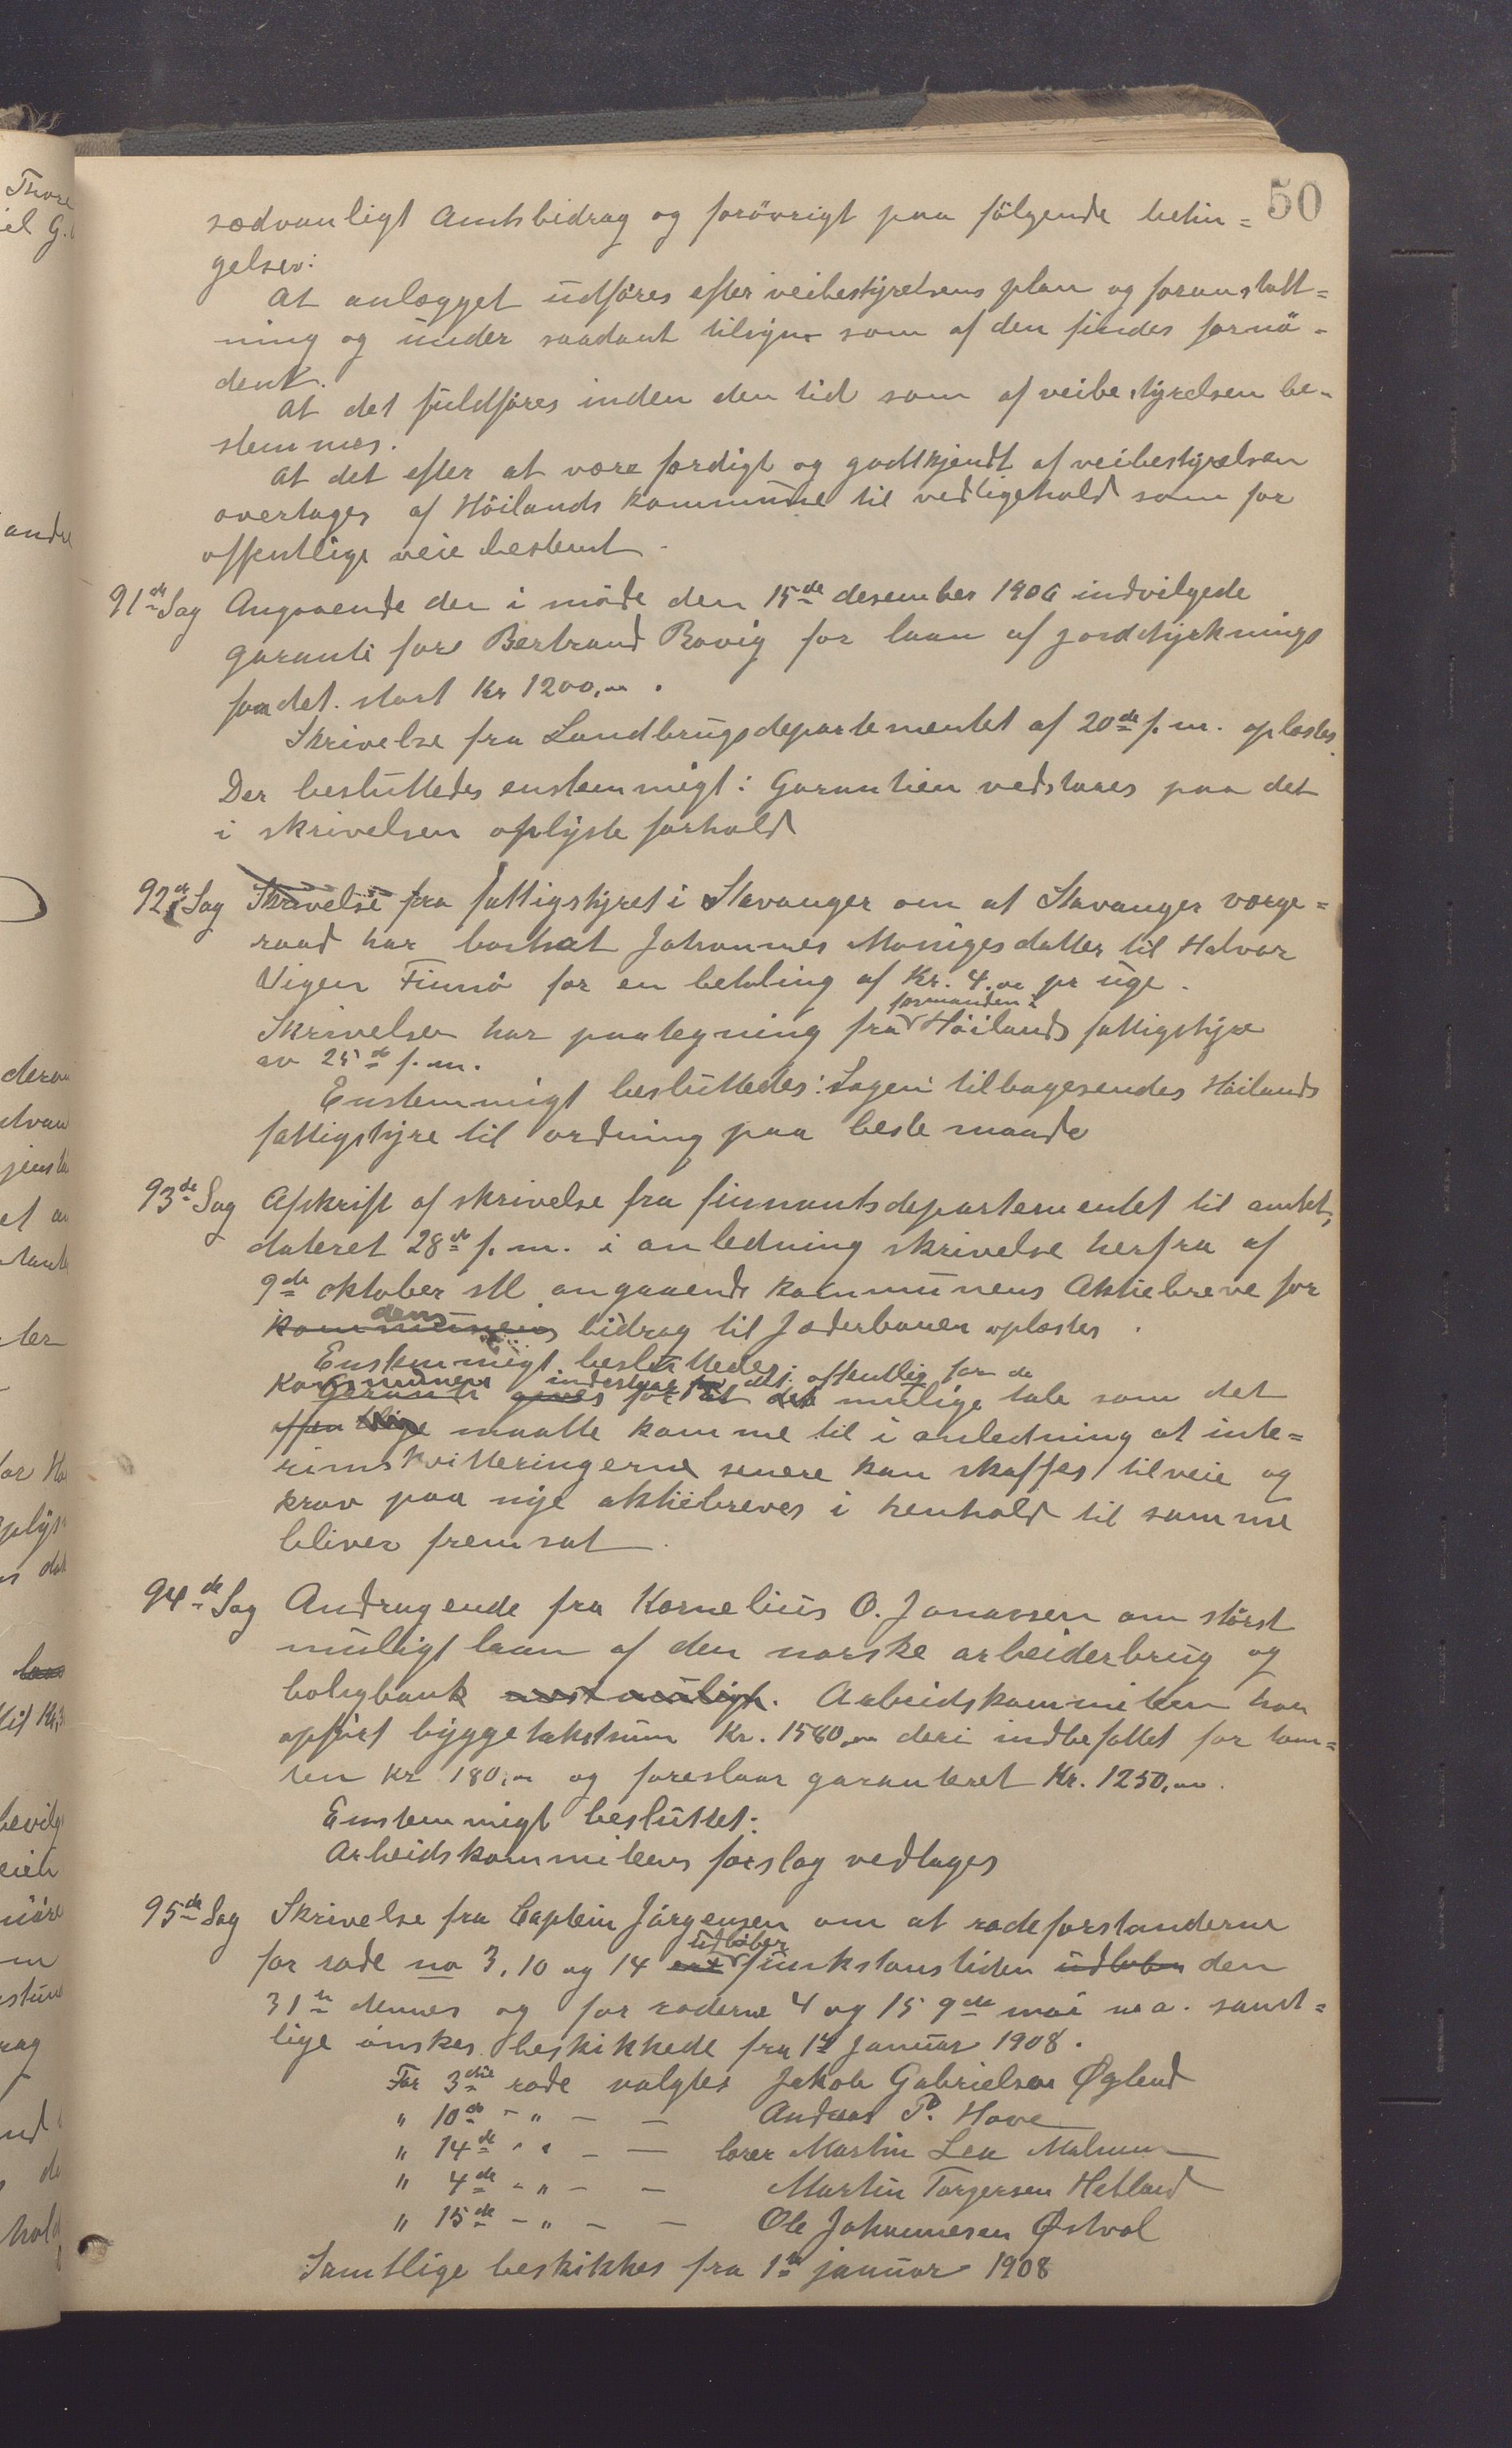 50
sædvanligt Amtsbidrag og forövrigt paa fölgende betin=
gelser:
At anlægget udföres efter veibestyrelsens plan og foranstalt=
ning og under saadant tilsyn som af den findes fornö-
dent.
At det fuldföres inden den tid som af veibestyrelsen be-
stemmes.
At det efter at være færdigt og godtkjendt af veibestyrelsen
overtages af Höilands kommune til vedligehold som for
offentlige veie bestemt.
91de Sag Angaaende den i möde den 15de desember 1906 indvilgede
garanti fore Bertrand Rovig for laan af jorddyrknings
fondet. stort Kr 1200,00.
Skrivelse fra Landbrugsdepartementet af 20de f.m. oplæstes.
Der besluttedes enstemmigt: Garantien vedstaaes paa det
i skrivelsen oplyste forhold
92de Sag Skrivelse fra fattigstyret i Stavanger om at Stavanger værge=
raad har bortsat Johannes Monigesdatter til Halvor
Vigen Finnö for en betaling af Kr. 4.00 pr uge.
Skrivelsen har paategning fra formanden i Höilands fattigstyre
av 25de f.m.
Enstemmigt besluttedes: Sagen tilbagesendes Höilands
fattigstyre til ordning paa beste maade
93de Sag Afskrift af skrivelse fra finnantsdepartementet til amtet,
dateret 28de f.m. i anledning skrivelse herfra af
9de oktober stl. angaaende kommunens Aktiebreve for
kommunens dens bidrag til Jæderbanen oplæstes.
Enstemmigt besluttedes:
Kommunen indestaar for det offentlig for de
Garanti gives for at det mulige tab som det
offentlige maatte komme til i anledning at inte=
rimskvitteringerne senere kan skaffes tilveie og
krav paa nye aktiebreves i henhold til samme
bliver fremsat.
94de Sag Andragende fra Kornelius O. Jonassen om störst
muligt laan af den norske arbeiderbrug og
boligbank mest muligt. Arbeidskommiteen har
opfört byggetakstsum Kr. 1580,00 deri indbefattet for tom=
ten Kr 180,00 og foreslaar garanteret Kr. 1250,00.
Enstemmigt besluttet:
Arbeidskommiteens forslag vedtages
95de Sag Skrivelse fra Captein Jörgensen om at rodeforstanderne
for rode no 3, 10 og 14 udlöber funkstionstiden udlöben den
31te dennes og for roderne 4 og 15 9de mai n.a. samt=
lige önskes beskikkede fra 1te Januar 1908.
For 3die rode valgtes Jakob Gabrielsen Øglend
" 10de - " - - Andreas P. Hove
" 14de - " - - lærer Martin Lea Malmim
" 4de - " - - Martin Torgersen Hetland
" 15de - " - - Ole Johannesen Østvol
Samtlige beskikkes fra 1te januar 1908